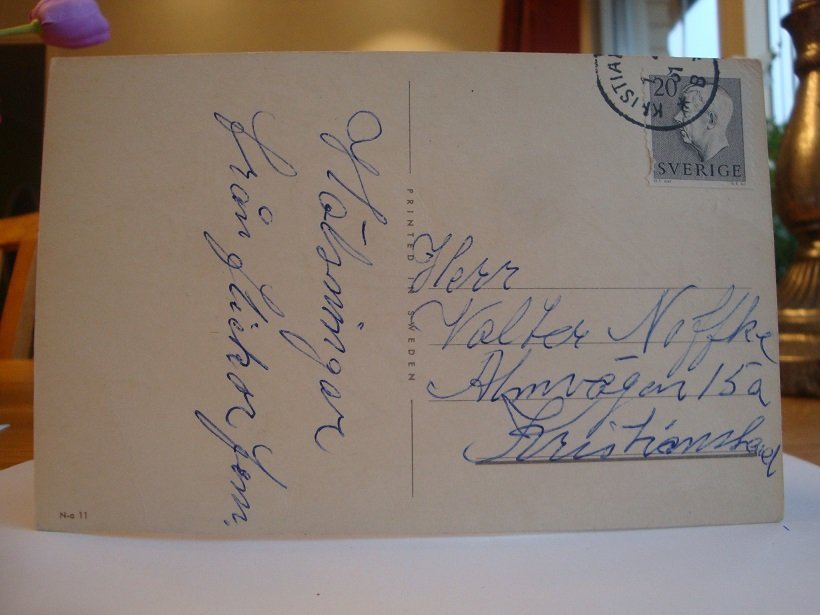 Hälsningar
från flickor fam.
PRINTED IN SWEDEN
N-o 11
20
SVERIGE
Herr
Valter Noffke
Almvägen 15a
Kristianstad